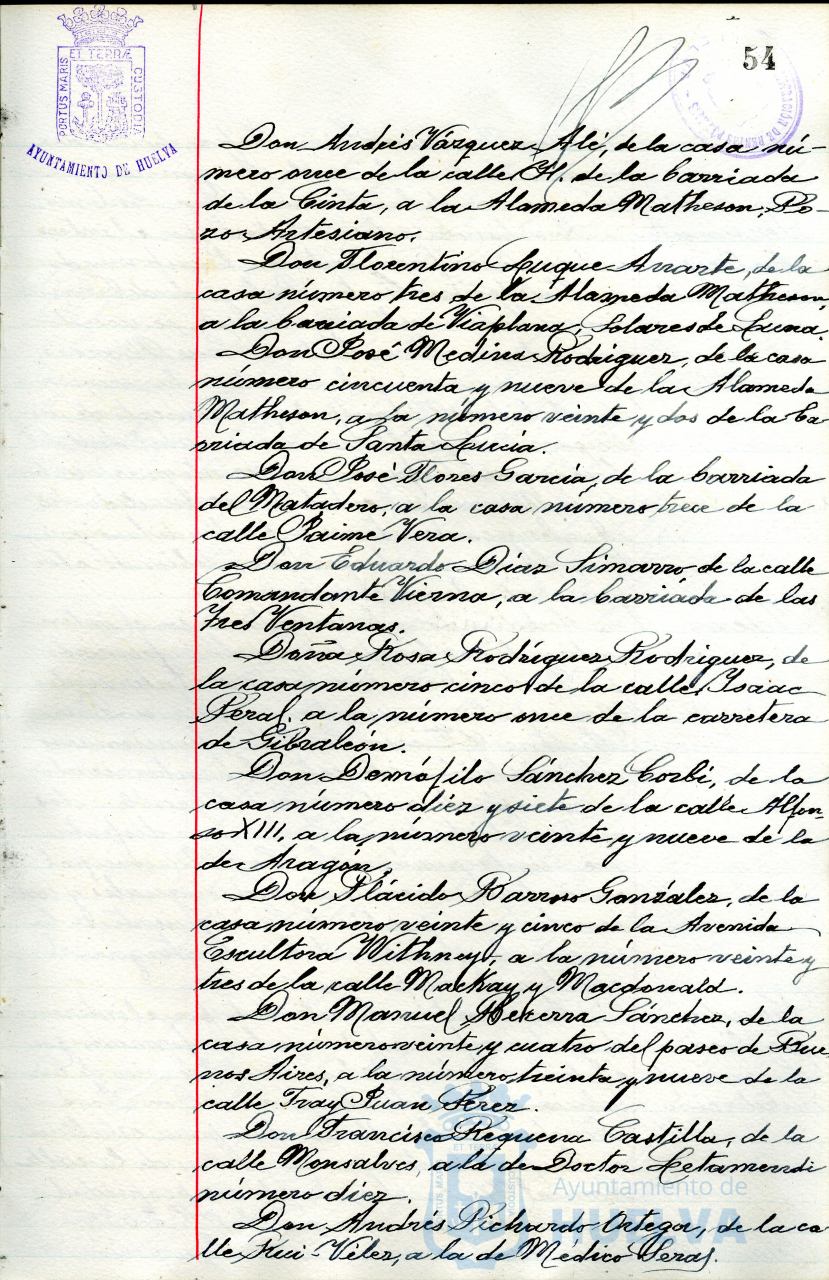 54
PORTUS MARIS
ET TERRÆ
CUSTODIA
AYUNTAMIENTO DE HUELVA
Don Andrés Vázquez Alé, de la casa nú-
mero once de la calle H. de la barriada
de la Cinta, a la Alameda Matheson, Po-
zo Artesiano.
Don Florentino Luque Anarte, de la
casa número tres de la Alameda Matheson,
a la barriada de Viaplana, Solares de Luna.
Don José Medina Rodriguez, de la casa
número cincuenta y nueve de la Alameda
Matheson, a la número veinte y dos de la ba-
rriada de Santa Lucía.
Don José Flores García, de la barriada
del Matadero, a la casa número trece de la
calle Jaime Vera.
Don Eduardo Díaz Simarro de la calle
Comandante Vierna, a la barriada de las
Tres Ventanas.
Doña Rosa Rodríguez Rodriguez, de
la casa número cinco de la calle Isaac
Peral, a la número once de la carretera
de Gibraleón.
Don Demófilo Sánchez Corbí, de la
casa número diez y siete de la calle Alfon-
so XIII, a la número veinte y nueve de la
de Aragón.
Don Plácido Barroso González, de la
casa número veinte y cinco de la Avenida
Escultora Withney, a la número veinte y
tres de la calle Mackay y Macdonald.
Don Manuel Becerra Sánchez, de la
casa número veinte y cuatro del paseo de Bue-
nos Aires, a la número treinta y nueve de la
calle Fray Juan Pérez.
Don Francisco Requena Castilla, de la
calle Monsalves, a la de Doctor Letamendi
número diez.
Don Andrés Pichardo Ortega, de la ca
lle Rui-Vélez, a la de Médico Seras.
Ayuntamiento de
HUELVA